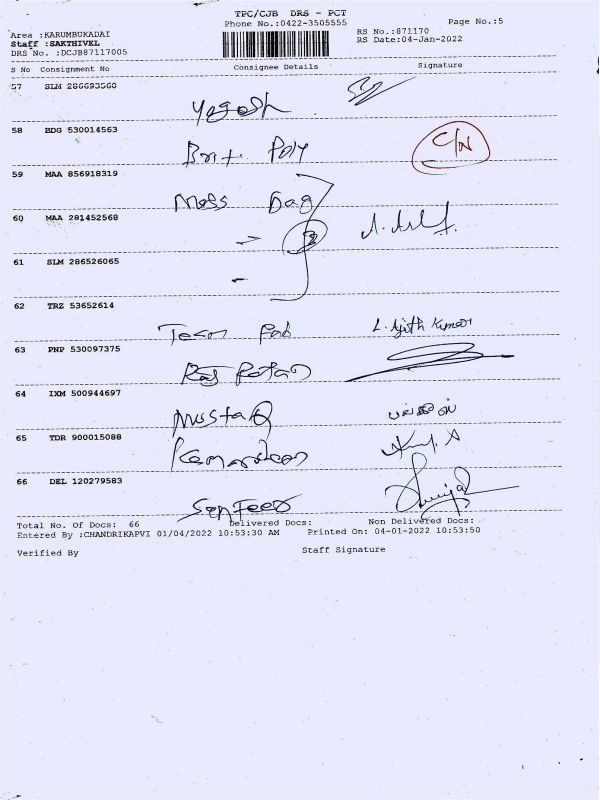 TPC/CJB DRS - PCT
Phone No.:0422-3505555
Page No.:5
Area :KARUMBUKADAI
RS No.:871170
Staff :SAKTHIVEL
RS Date:04-Jan-2022
DRS No. :DCJB87117005
S No Consignment No Consignee Details Signature
57 SLM 286693560
Yogesh
58 BDG 530014563
Brit Poly
C/N
59 MAA 856918319
Mass Bag
60 MAA 281452568
61 SLM 286526065
62 TRZ 53652614
Team Fab L. Ajith Kumar
63 PNP 530097375
Raj Ratan
64 IXM 500944697
Mustaq
65 TDR 900015088
66 DEL 120279583
Total No. Of Docs: 66 Delivered Docs: Non Delivered Docs:
Entered By :CHANDRIKAPVI 01/04/2022 10:53:30 AM Printed On: 04-01-2022 10:53:50
Verified By Staff Signature